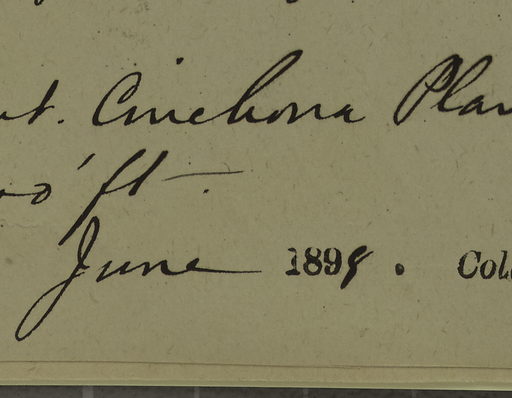 t. Cinchona Plan
00' ft.
June 1898. Col